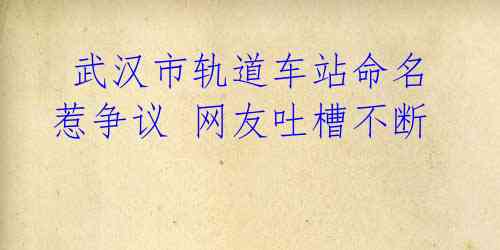 武汉市轨道车站命名
惹争议 网友吐槽不断